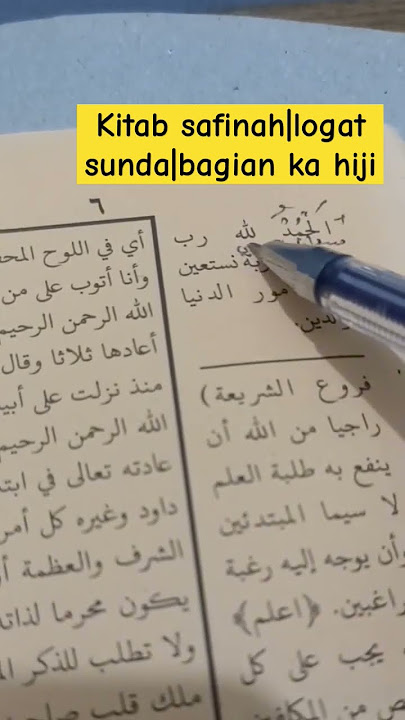 Kitab safinah|logat
sunda|bagian ka hiji
٦
اَلْحَمْدُ لله رب
نستعين
مور الدنيا
والدين.
فروع الشريعة)
راجيا من الله أن
ينفع به طلبة العلم
لا سيما المبتدئين
وأن يوجه إليه رغبة
(اعلم)
يجب على كل
أي في اللوح
وأنا أتوب على من
الله الرحمن الرحيم
أعادها ثلاثا وقال
منذ نزلت على
الله الرحمن الرحيم
عادته تعالى في
داود وغيره كل أمر
الشرف والعظمة
يكون محرما لذاته
ولا تطلب للذكر
ملك قلب